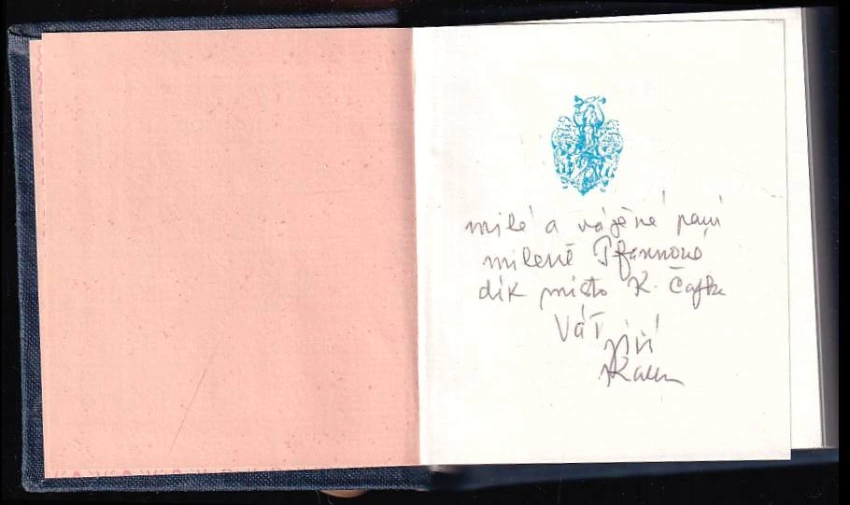 milé a vážené paní
mileně Pfannové
dík místo K. Čapka
Váš
Jiří